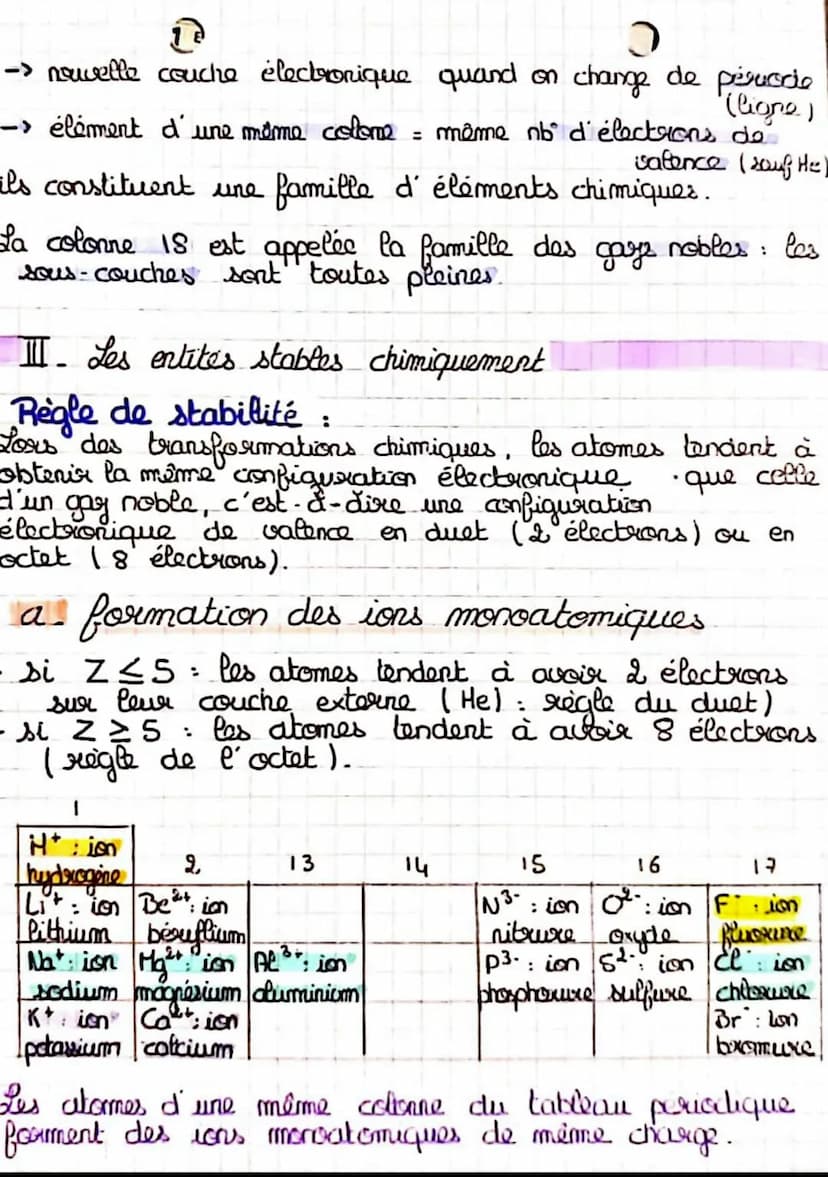 1e
-> nouvelle couche électronique quand on change de période
(ligne)
-> élément d'une même colone = même nb° d'électrons de
valence (sauf He)
ils constituent une famille d'éléments chimiques.
La colonne 18 est appelée la famille des gays nobles : les
sous-couches sont toutes pleines.
III - Les entités stables chimiquement
Règle de stabilité :
Lors des transformations chimiques, les atomes tendent à
obtenir la même configuration électronique que celle
d'un gay noble, c'est-à-dire une configuration
électronique de valence en duet (2 électrons) ou en
octet (8 électrons).
a- formation des ions monoatomiques
- si Z ≤ 5 : les atomes tendent à avoir 2 électrons
sur leur couche externe (He) : règle du duet)
- si Z ≥ 5 : les atomes tendent à avoir 8 électrons
(règle de l'octet).
1
H⁺ : ion
hydrogène
2 13 14 15 16 17
Li⁺ : ion Be²⁺ : ion N³⁻ : ion O²⁻ : ion F⁻ : ion
lithium béryllium nitrure oxyde fluorure
Na⁺ : ion Mg²⁺ : ion Al³⁺ : ion P³⁻ : ion S²⁻ : ion Cl⁻ : ion
sodium magnésium aluminium phosphorure sulfure chlorure
K⁺ : ion Ca²⁺ : ion Br⁻ : ion
potassium calcium bromure
Les atomes d'une même colonne du tableau periodique
forment des ions monoatomiques de même charge.